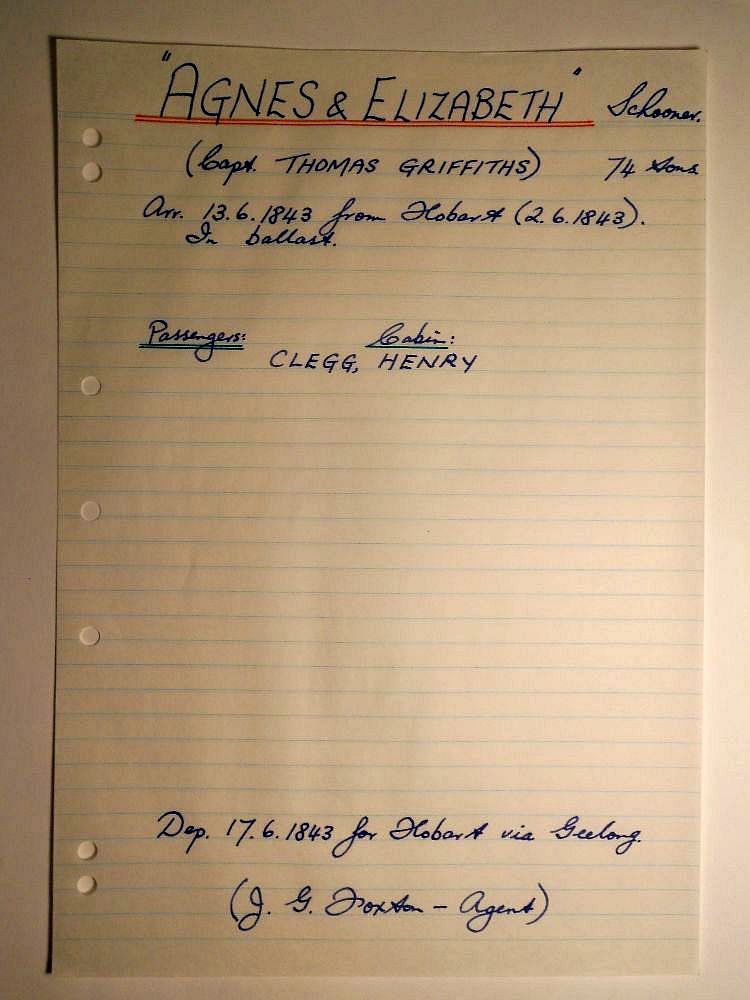 "AGNES & ELIZABETH" Schooner.
(Capt. THOMAS GRIFFITHS) 74 tons
Arr. 13.6.1843 from Hobart (2.6.1843).
In ballast.
Passengers: Cabin:
CLEGG, HENRY
Dep. 17.6.1843 for Hobart via Geelong.
(J. G. Foxton - Agent)